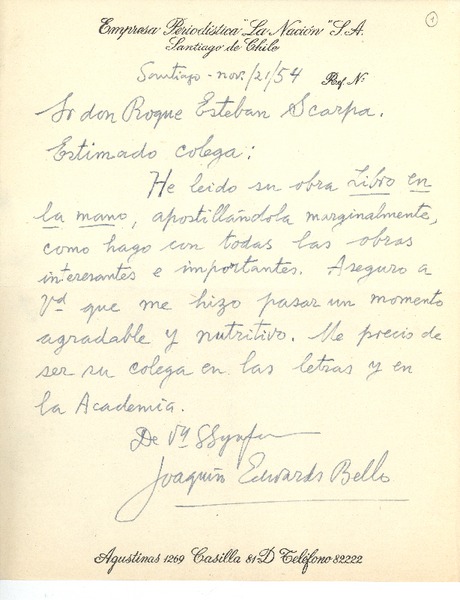 1
Empresa Periodística "La Nación" S.A.
Santiago de Chile
Santiago - nov./21/54 Ref. Nº
Sr don Roque Esteban Scarpa.
Estimado colega:
He leido su obra Libro en
la mano, apostillándola marginalmente,
como hago con todas las obras
interesantes e importantes. Aseguro a
Vd que me hizo pasar un momento
agradable y nutritivo. Me precio de
ser su colega en las letras y en
la Academia.
De Vd
Joaquín Edwards Bello
Agustinas 1269 Casilla 81-D Teléfono 82222